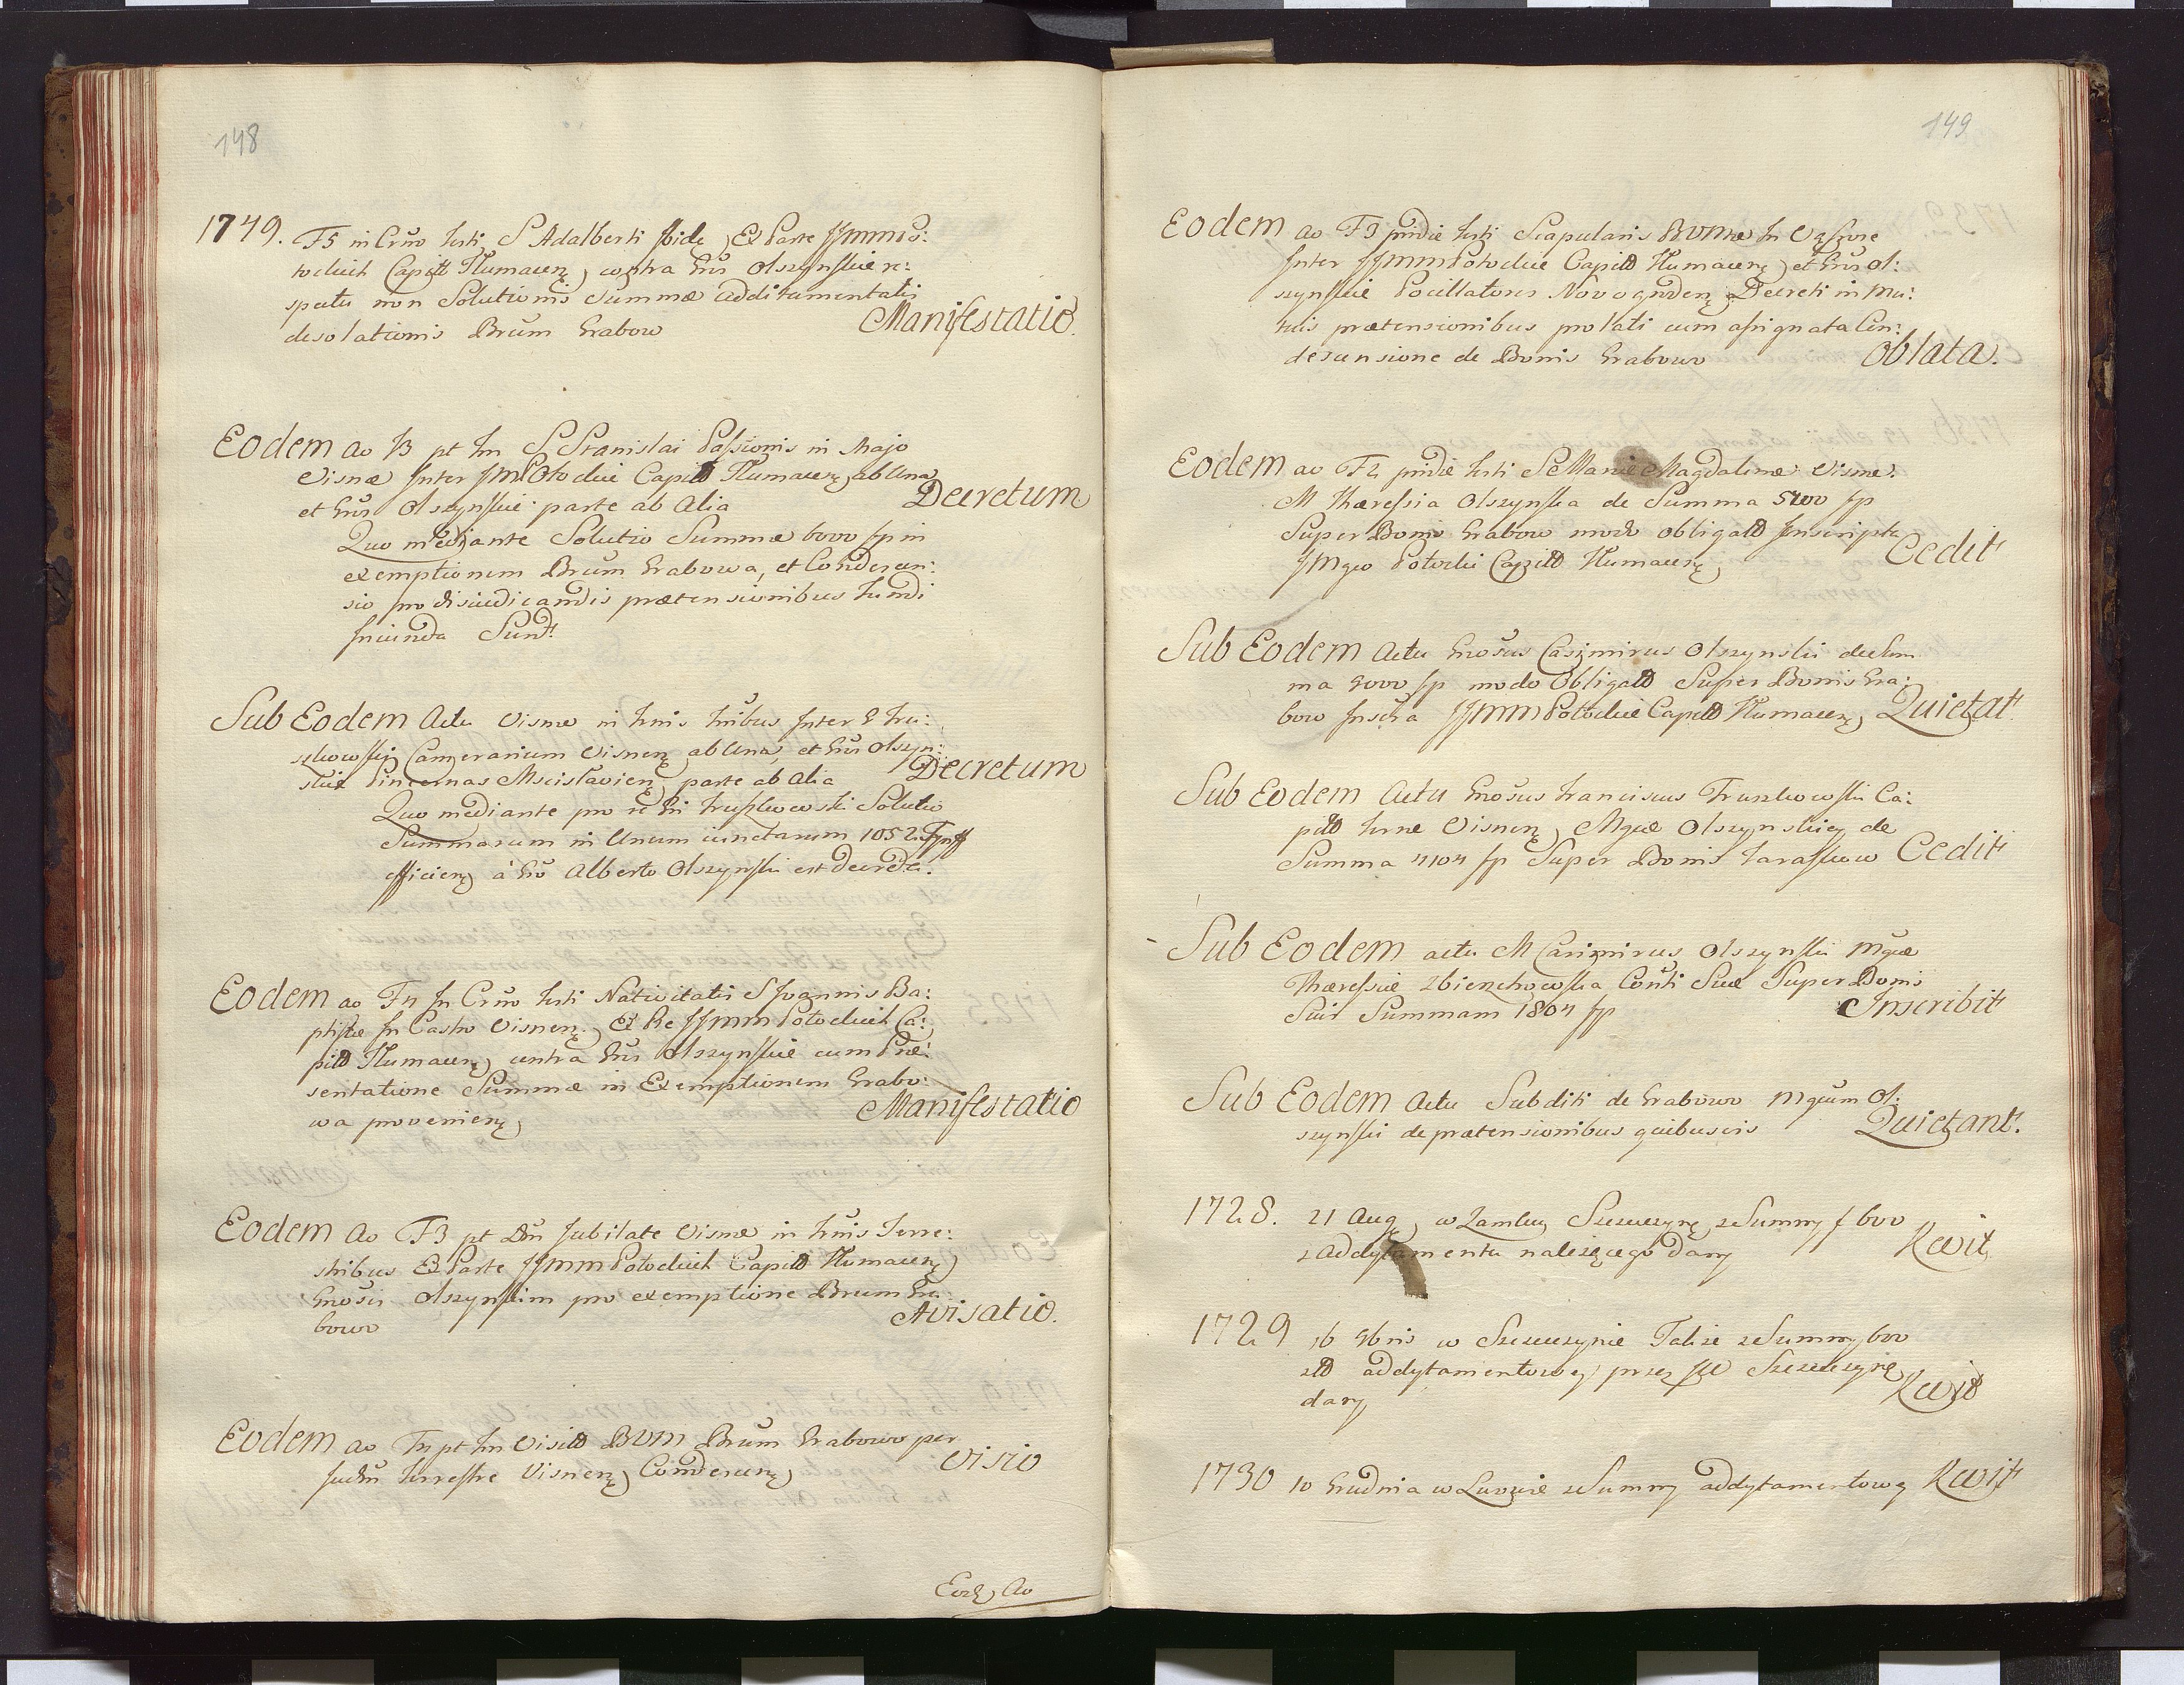 148
1749. F5 in Crũo festi S Adalberti ibidę Ex Parte JJmm Po:
tockich Capitt Tlumacenę contra Gñs Olszynskie re:
spectu non Solutionis Summæ additamentalis
desolationis Brum Grabow Manifestatio.
Eodem Ao f3 pt fm S Stanislai Passionis in Majo
Visnæ Inter JmPotockie Capitt Tlumacenę ab Una
et Gñs Olszynskie parte ab Alia Decretum
Quo mediante Solutio Summæ 6000 fp in
exemptionem Brum Grabowa, et Condescen:
sio pro disiudicandis prætensionibus fundi
Sunt
Sub Eodem Actu Visnæ in Inter G Tru:
szkowskij Camerarium Visnenę ab Una, et Gñs Olszyn:
skie Pincernas Mscislavienę parte ab Alia Decretum
Quo mediante pro re Truszkowski Solutio
Summarum in Unum iunctarum 1052 Tynff
efficienę à Gõ Alberto Olszynski est
Eodem ao F4 In Crũo festi Nativitatis S Joannis Ba:
ptistæ In Castro Visnenę Ex Pte JJmm Potockich Ca:
pitt Tlumacenę contra Gñs Olszynskie cum Præ:
sentatione Summæ in Exemptionem Grabo:
wa provenienę Manifestatio
Eodem Ao F3 pt Dñ Jubilate Visnæ in Tñis Terre:
stribus Ex Parte JJmm Potockich Capitt Tlumacenę
Gnosis Olszynskim pro exemptione Brum Gra:
bowo Avisatio.
Eodem ao pt fm Visitt BVM Brum Grabowo per
Judm Terrestre Visnenę Condescenę Visio
Eodę Ao
149
Eodem ao F3 pridie festi Scapularis BVMæ In
Inter JJmm Potockie Capitt Tlumacenę et Gñs Ol:
szynskie Pocillatores Novogrodenę Decreti in mu:
tuis prætensionibus prolati cum assignata Con:
descensione de Bonis Grabowo Oblata.
Eodem ao F2 pridie festi S Mariæ Magdalenæ Visnæ
M Thæressia Olszynska de Summa 5200 fp
Super Bonis Grabow modo obligatt Inscripta
JMgco Potocki Capitt Tlumacenę Cedit
Sub Eodem Actu Gnosus Casimirus Olszynski de Sum
ma 9000 fp modo Obligatt Super Bonis Gra:
bow JJmm Potockie Capitt Tlumacenę Quietat.
Sub Eodem Actu Gnosus Franciscus Truszkowski Ca:
pitt Visnenę Mgcæ Olszynskiey de
Summa 4104 fp Super Bonis Taraskow Cedit
Sub Eodem actu M Casimirus Olszynski Mgcæ
Thæressiæ Zbierzchowska Conti Suæ Super Bonis
Suis Summam 1804 fp Inscribit
Sub Eodem Actu Subditi de Grabowo Mgcum Ol:
szynski de prætensionibus quibusvis Quietant.
1728. 21 Augę w Zamkuy Szczuczynę z Summy f 600
z Addytamentu nalezącego dany Kwit
1729 16 9bris w Szczuczynie Takze z Summy 600
złł addytamentowey przez Szczuczynę
dany Kwitt
1730 10 Grudnia w z Summy addytamentowę Kwit